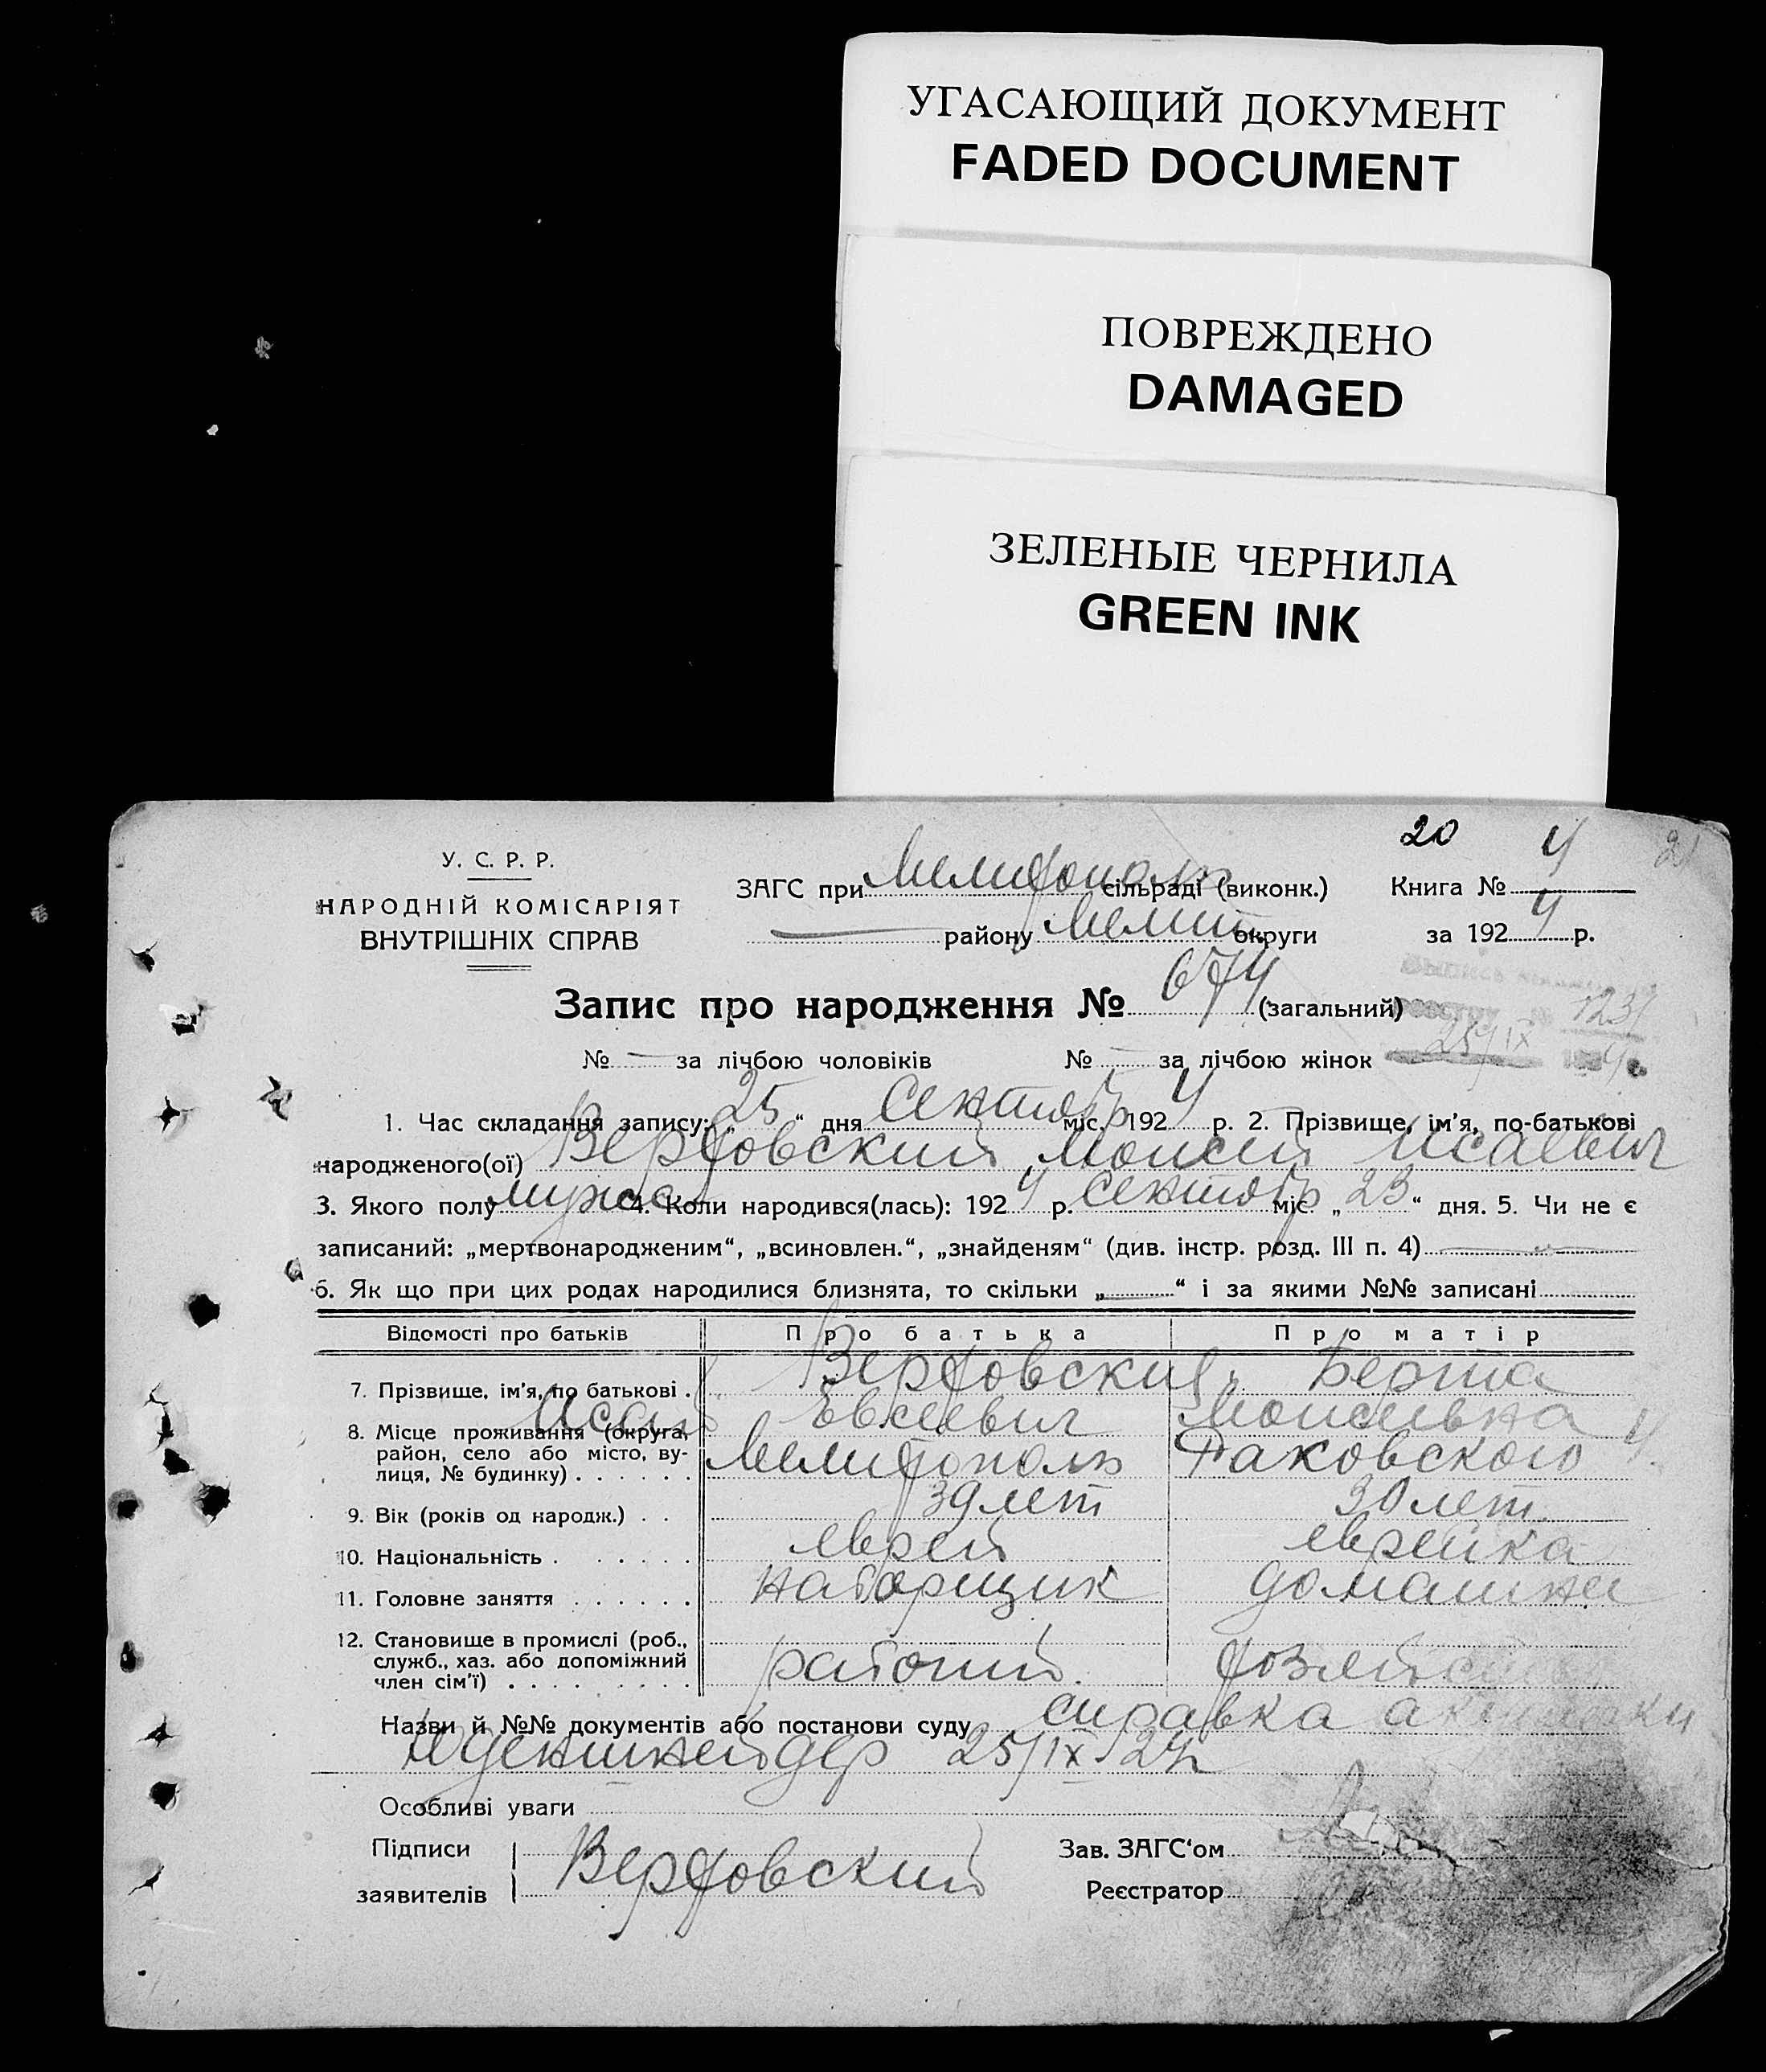 УГАСАЮЩИЙ ДОКУМЕНТ
FADED DOCUMENT
ПОВРЕЖДЕНО
DAMAGED
ЗЕЛЕНЫЕ ЧЕРНИЛА
GREEN INK
20 4 21
У. С. Р. Р.
НАРОДНІЙ КОМІСАРІЯТ
ВНУТРІШНІХ СПРАВ
ЗАГС при Мелитополь сільраді (виконк.) Книга №
району Мелит. округи за 1924 р.
Запис про народження № 674 (загальний)
1231
№ — за лічбою чоловіків № — за лічбою жінок 25/IX
1. Час складання запису: „25“ дня Сентябр міс. 1924 р. 2. Прізвище, ім'я, по-батькові
народженого(ої) Вертовский Моисей Исаевич
3. Якого полу мужс 4. Коли народився(лась): 1924 р. Сентябр міс. „23“ дня. 5. Чи не є
записаний: „мертвонародженим“, „всиновлен.“, „знайденям“ (див. інстр. розд. III п. 4)
6. Як що при цих родах народилися близнята, то скільки „ “ і за якими №№ записані
Відомості про батьків Про батька Про матір
7. Прізвище, ім'я, по батькові . Вертовский Берта
Исай Евсеевич Моисеевна
8. Місце проживання (округа, район, село або місто, вулиця, № будинку) . . . . . . Мелитополь Раковского 4
9. Вік (років од народж.) . . 39 лет 30 лет
10. Національність . . . . . . еврей еврейка
11. Головне заняття . . . . . . наборщик домашне
12. Становище в промислі (роб., служб., хаз. або допоміжний член сім'ї) . . . . . . . . . рабочий
Назви й №№ документів або постанови суду справка акушерки
25/IX 24
Особливі уваги
Підписи заявителів Вертовский
Зав. ЗАГС'ом
Реєстратор